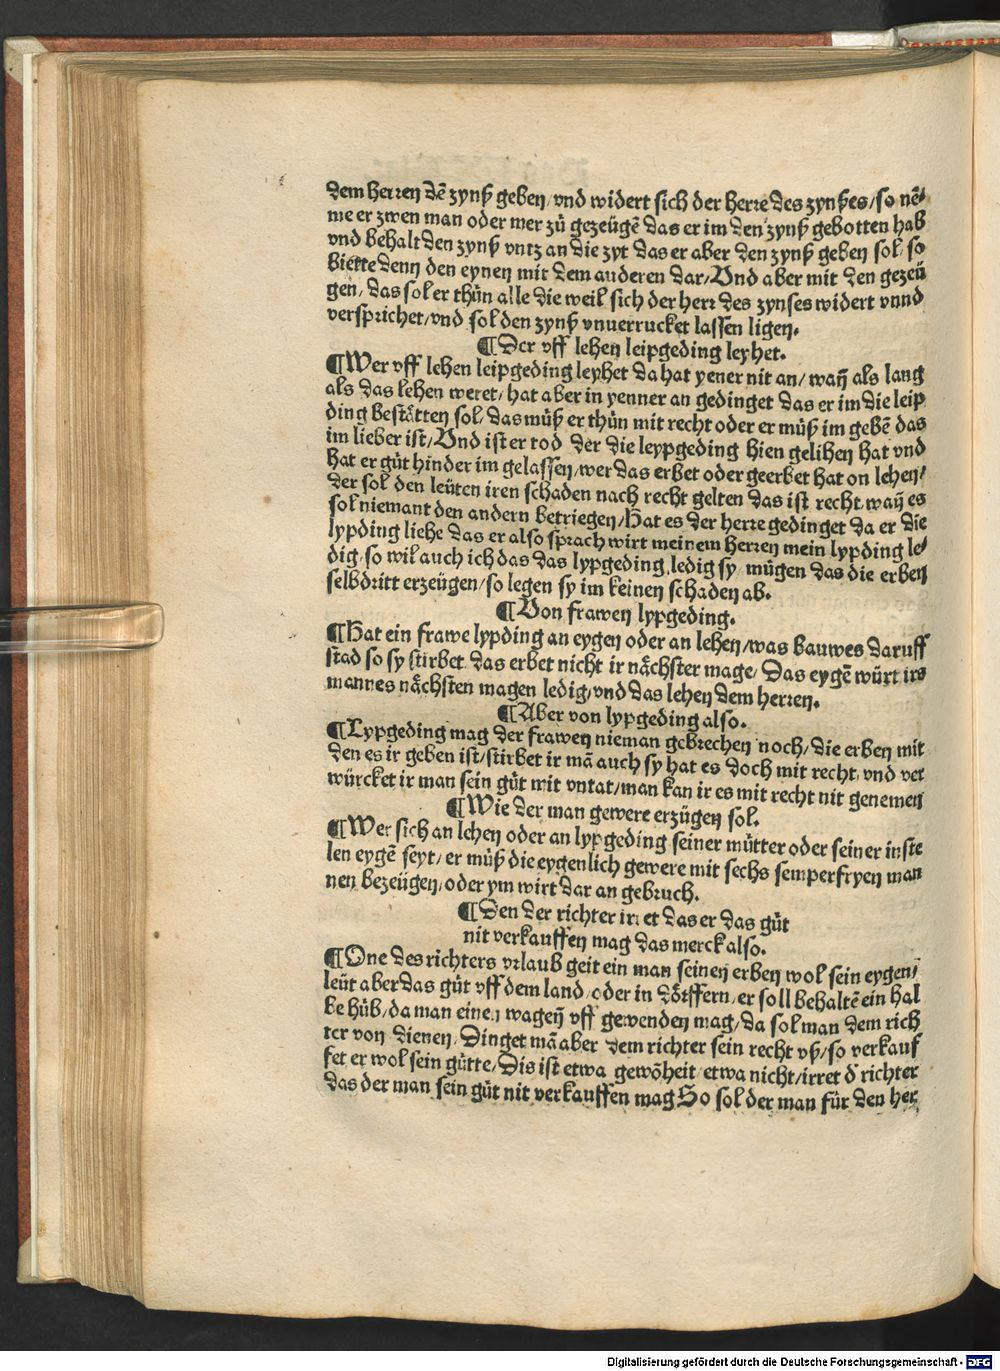 dem herren dē zynß geben/vnd widert sich der herre des zynßes/so nē⸗
me er zwen man oder mer zů gezeügē das er im den zynß gebotten hab
vnd behalt den zynß vntz an die zyt das er aber den zynß geben sol/so
biette denn den eynen mit dem anderen dar/Vnd aber mit den gezeü
gen/das sol er thůn alle die weil sich der herr des zynses widert vnnd
versprichet/vnd sol den zynß vnuerrucket lassen ligen.
¶Der vff lehen leipgeding leyhet.
¶Wer vff lehen leipgeding leyhet da hat yener nit an/wañ als lang
als das lehen weret/hat aber in yenner an gedinget das er im die leip
ding bestätten sol/das můß er thůn mit recht oder er můß im gebē das
im lieber ist/Vnd ist er tod der die leypgeding hien gelihen hat vnd
hat er gůt hinder im gelassen/wer das erbet oder geerbet hat on lehen/
der sol den leüten iren schaden nach recht gelten das ist recht/wañ es
sol niemant den andern betriegen/Hat es der herre gedinget da er die
lypding liche das er also sprach wirt meinem herren mein lypding le⸗
dig/so wil auch ich das das lypgeding ledig sy/mügen das die erben
selbdritt erzeügen/so legen sy im keinen schaden ab.
¶Von frawen lypgeding.
¶Hat ein frawe lypding an eygen oder an lehen/was bauwes daruff
stad so sy stirbet das erbet nicht ir nächster mage/Das eygē würt irs
mannes nächsten magen ledig/vnd das lehen dem herren.
¶Aber von lypgeding also.
¶Lypgeding mag der frawen nieman gebrechen noch/die erben mit
den es ir geben ist/stirbet ir mā auch sy hat es doch mit recht/vnd ver
würcket ir man sein gůt mit vntat/man kan ir es mit recht nit genemen
¶Wie der man gewere erzügen sol.
¶Wer sich an lehen oder an lypgeding seiner můtter oder seiner inste
len eygē seyt/er můß die eygenlich gewere mit sechs semperfryen man
nen bezeügen/oder ym wirt dar an gebruch.
¶Den der richter irret das er das gůt
nit verkauffen mag das merck also.
¶One des richters vrlaub geit ein man seinen erben wol sein eygen/
leüt aber das gůt vff dem land/oder in dörffern/er soll behaltē ein hal
be hůb/da man einen wagen vff gewenden mag/da sol man dem rich
ter von dienen/Dinget mā aber dem richter sein recht vß/so verkauf
fet er wol sein gůtte/Dis ist etwa gewōheit/etwa nicht/irret d' richter
das der man sein gůt nit verkauffen mag So sol der man für den her
Digitalisierung gefördert durch die Deutsche Forschungsgemeinschaft - DFG